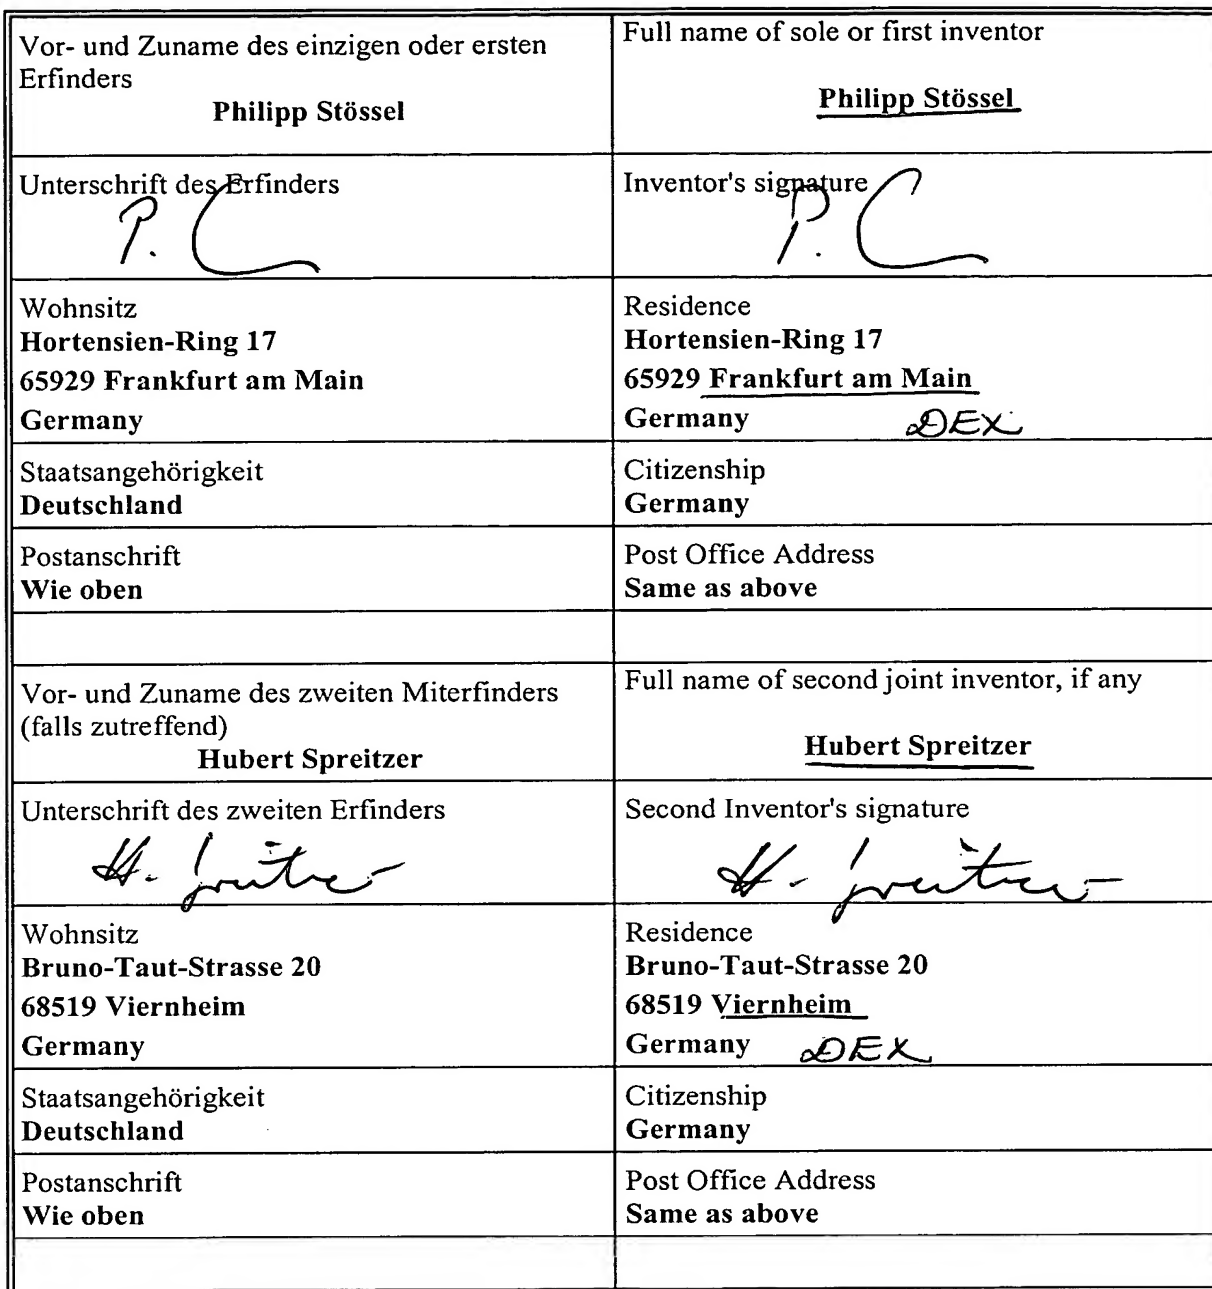 Vor- und Zuname des einzigen oder ersten
Erfinders
Philipp Stössel
Full name of sole or first inventor
Philipp Stössel
Unterschrift des Erfinders
P.
Inventor's signature
P.
Wohnsitz
Hortensien-Ring 17
65929 Frankfurt am Main
Germany
Residence
Hortensien-Ring 17
65929 Frankfurt am Main
Germany DEX
Staatsangehörigkeit
Deutschland
Citizenship
Germany
Postanschrift
Wie oben
Post Office Address
Same as above
Vor- und Zuname des zweiten Miterfinders
(falls zutreffend)
Hubert Spreitzer
Full name of second joint inventor, if any
Hubert Spreitzer
Unterschrift des zweiten Erfinders
H.
Second Inventor's signature
H.
Wohnsitz
Bruno-Taut-Strasse 20
68519 Viernheim
Germany
Residence
Bruno-Taut-Strasse 20
68519 Viernheim
Germany DEX
Staatsangehörigkeit
Deutschland
Citizenship
Germany
Postanschrift
Wie oben
Post Office Address
Same as above